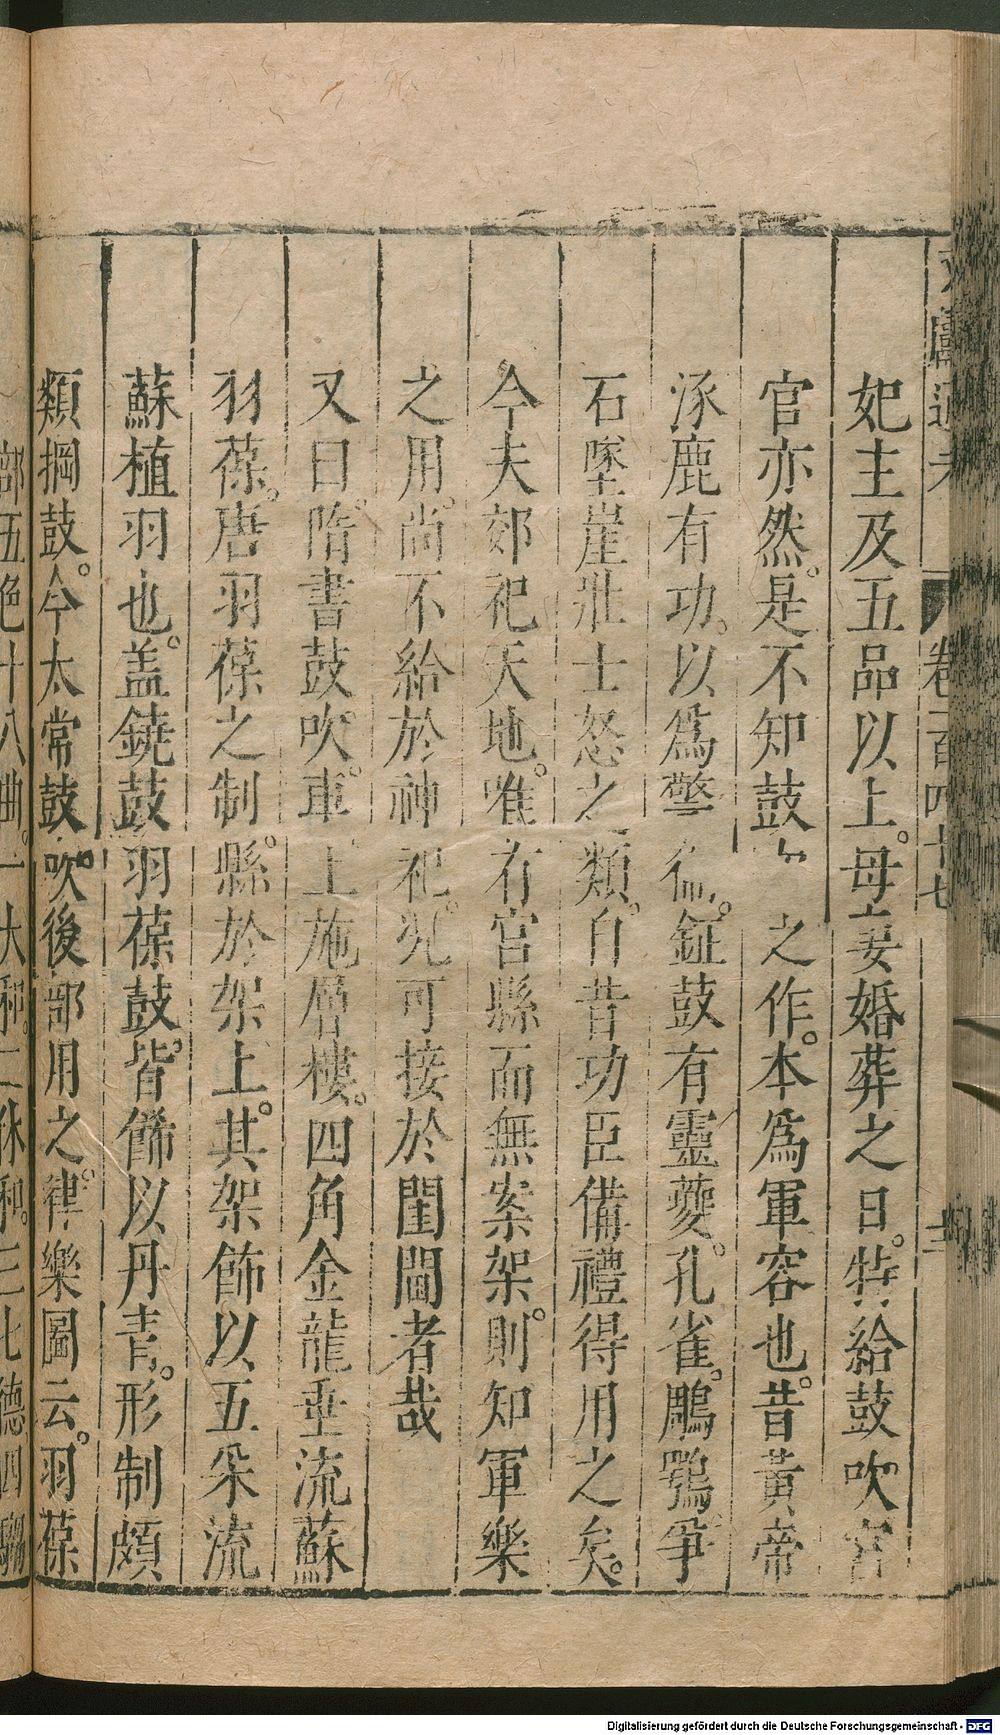 妃主及五品以上。母妻婚葬之日。特給鼓吹宮
官亦然。是不知鼓 之作。本爲軍容也。昔黃帝
涿鹿有功。以爲警衞。鉦鼓有靈夔。孔雀。鵰鶚爭
石墜崖壯士怒之類。自昔功臣備禮得用之矣。
今夫郊祀天地。唯有宮縣而無案架。則知軍樂
之用。尚不給於神祀。況可接於閨閫者哉
又曰。隋書鼓吹。車上施層樓。四角金龍垂流蘇
羽葆。唐羽葆之制。縣於架上。其架飾以五朵流
蘇植羽也。盖鐃鼓羽葆鼓。皆飾以丹青。形制頗
類掆鼓。今太常鼓吹。後部用之。律樂圖云。羽葆
部五色十八曲。一太和。二休和。三七德四騶
卷一百四十七
Digitalisierung gefördert durch die Deutsche Forschungsgemeinschaft - DFG